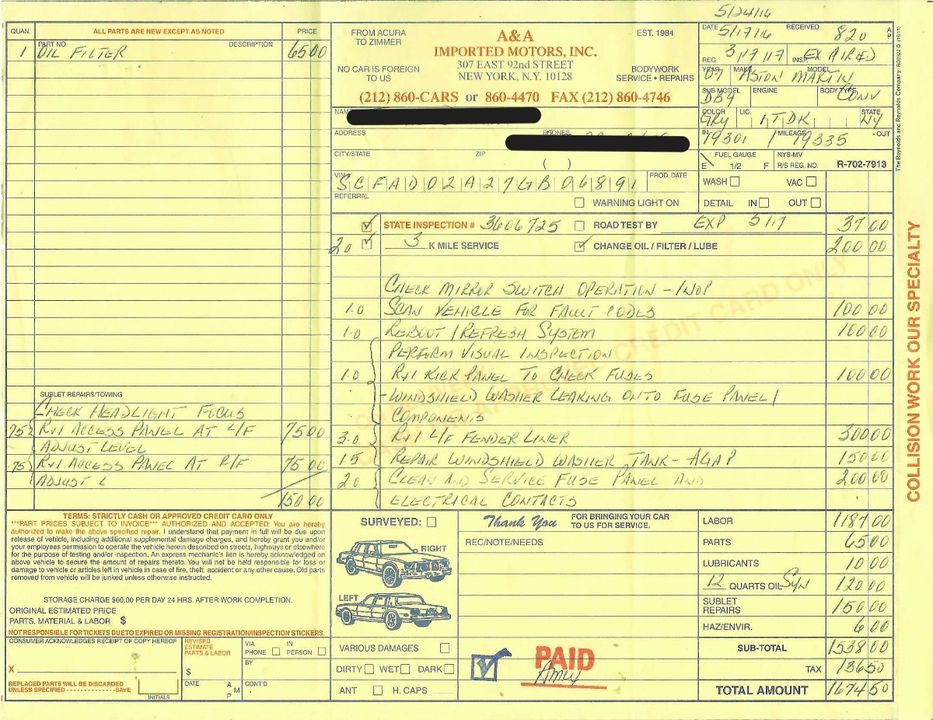 5/24/16
QUAN. ALL PARTS ARE NEW EXCEPT AS NOTED PRICE
PART NO. DESCRIPTION
1 OIL FILTER 65 00
SUBLET REPAIRS/TOWING
CHECK HEADLIGHT FOCUS
.75 R+I ACCESS PANEL AT L/F 75 00
ADJUST LEVEL
.75 R+I ACCESS PANEL AT R/F 75 00
ADJUST L
150 00
FROM ACURA
TO ZIMMER
NO CAR IS FOREIGN
TO US
A&A
IMPORTED MOTORS, INC.
307 EAST 92nd STREET
NEW YORK, N.Y. 10128
EST. 1984
BODYWORK
SERVICE • REPAIRS
(212) 860-CARS or 860-4470 FAX (212) 860-4746
NAME
ADDRESS PHONES
CITY/STATE ZIP ( )
VIN SCFAD02A27GB06891 PROD. DATE
REFERRAL
WARNING LIGHT ON
DATE 5/17/16 RECEIVED 820 A P
REG. 3/17/17 INSP. EXPIRED
YEAR 07 MAKE ASTON MARTIN MODEL
SUB MODEL DB9 ENGINE BODY TYPE CONV
COLOR GRY LIC. 1TDK STATE NY
IN 19301 / MILEAGE 19335 - OUT
FUEL GAUGE
E 1/2 F
NYS-MV
R/S REG. NO. R-702-7913
WASH VAC
DETAIL IN OUT
STATE INSPECTION # 3606725 ROAD TEST BY EXP 5/17 37 00
2.0 3 K MILE SERVICE CHANGE OIL / FILTER / LUBE 200 00
CHECK MIRROR SWITCH OPERATION - INOP
1.0 SCAN VEHICLE FOR FAULT CODES 100 00
1.0 REBOOT / REFRESH SYSTEM 100 00
PERFORM VISUAL INSPECTION
1.0 R+I KICK PANEL TO CHECK FUSES 100 00
- WINDSHIELD WASHER LEAKING ONTO FUSE PANEL /
COMPONENTS
3.0 R+I L/F FENDER LINER 300 00
1.5 REPAIR WINDSHIELD WASHER TANK - ASAP 150 00
2.0 CLEAN AND SERVICE FUSE PANEL AND 200 00
ELECTRICAL CONTACTS
COLLISION WORK OUR SPECIALTY
TERMS: STRICTLY CASH OR APPROVED CREDIT CARD ONLY
***PART PRICES SUBJECT TO INVOICE*** AUTHORIZED AND ACCEPTED: You are hereby
authorized to make the above specified repair. I understand that payment in full will be due upon
release of vehicle, including additional supplemental damage charges, and hereby grant you and/or
your employees permission to operate the vehicle herein described on streets, highways or elsewhere
for the purpose of testing and/or inspection. An express mechanic's lien is hereby acknowledged on
above vehicle to secure the amount of repairs thereto. You will not be held responsible for loss or
damage to vehicle or articles left in vehicle in case of fire, theft, accident or any other cause. Old parts
removed from vehicle will be junked unless otherwise instructed.
STORAGE CHARGE $60.00 PER DAY 24 HRS. AFTER WORK COMPLETION.
ORIGINAL ESTIMATED PRICE
PARTS, MATERIAL & LABOR $
NOT RESPONSIBLE FOR TICKETS DUE TO EXPIRED OR MISSING REGISTRATION/INSPECTION STICKERS.
CONSUMER ACKNOWLEDGES RECEIPT OF COPY HEREOF
X
REPLACED PARTS WILL BE DISCARDED
UNLESS SPECIFIED SAVE
INITIALS
REVISED
ESTIMATE
PARTS & LABOR
$
DATE A M P
VIA
PHONE IN PERSON
BY
CONT'D
SURVEYED:
RIGHT
LEFT
VARIOUS DAMAGES
DIRTY WET DARK
ANT H. CAPS
Thank You FOR BRINGING YOUR CAR
TO US FOR SERVICE.
REC/NOTE/NEEDS
PAID
LABOR 1187 00
PARTS 65 00
LUBRICANTS 10 00
12 QUARTS OIL SYN 120 00
SUBLET
REPAIRS 150 00
HAZ/ENVIR. 6 00
SUB-TOTAL 1538 00
TAX 136 50
TOTAL AMOUNT 1674 50